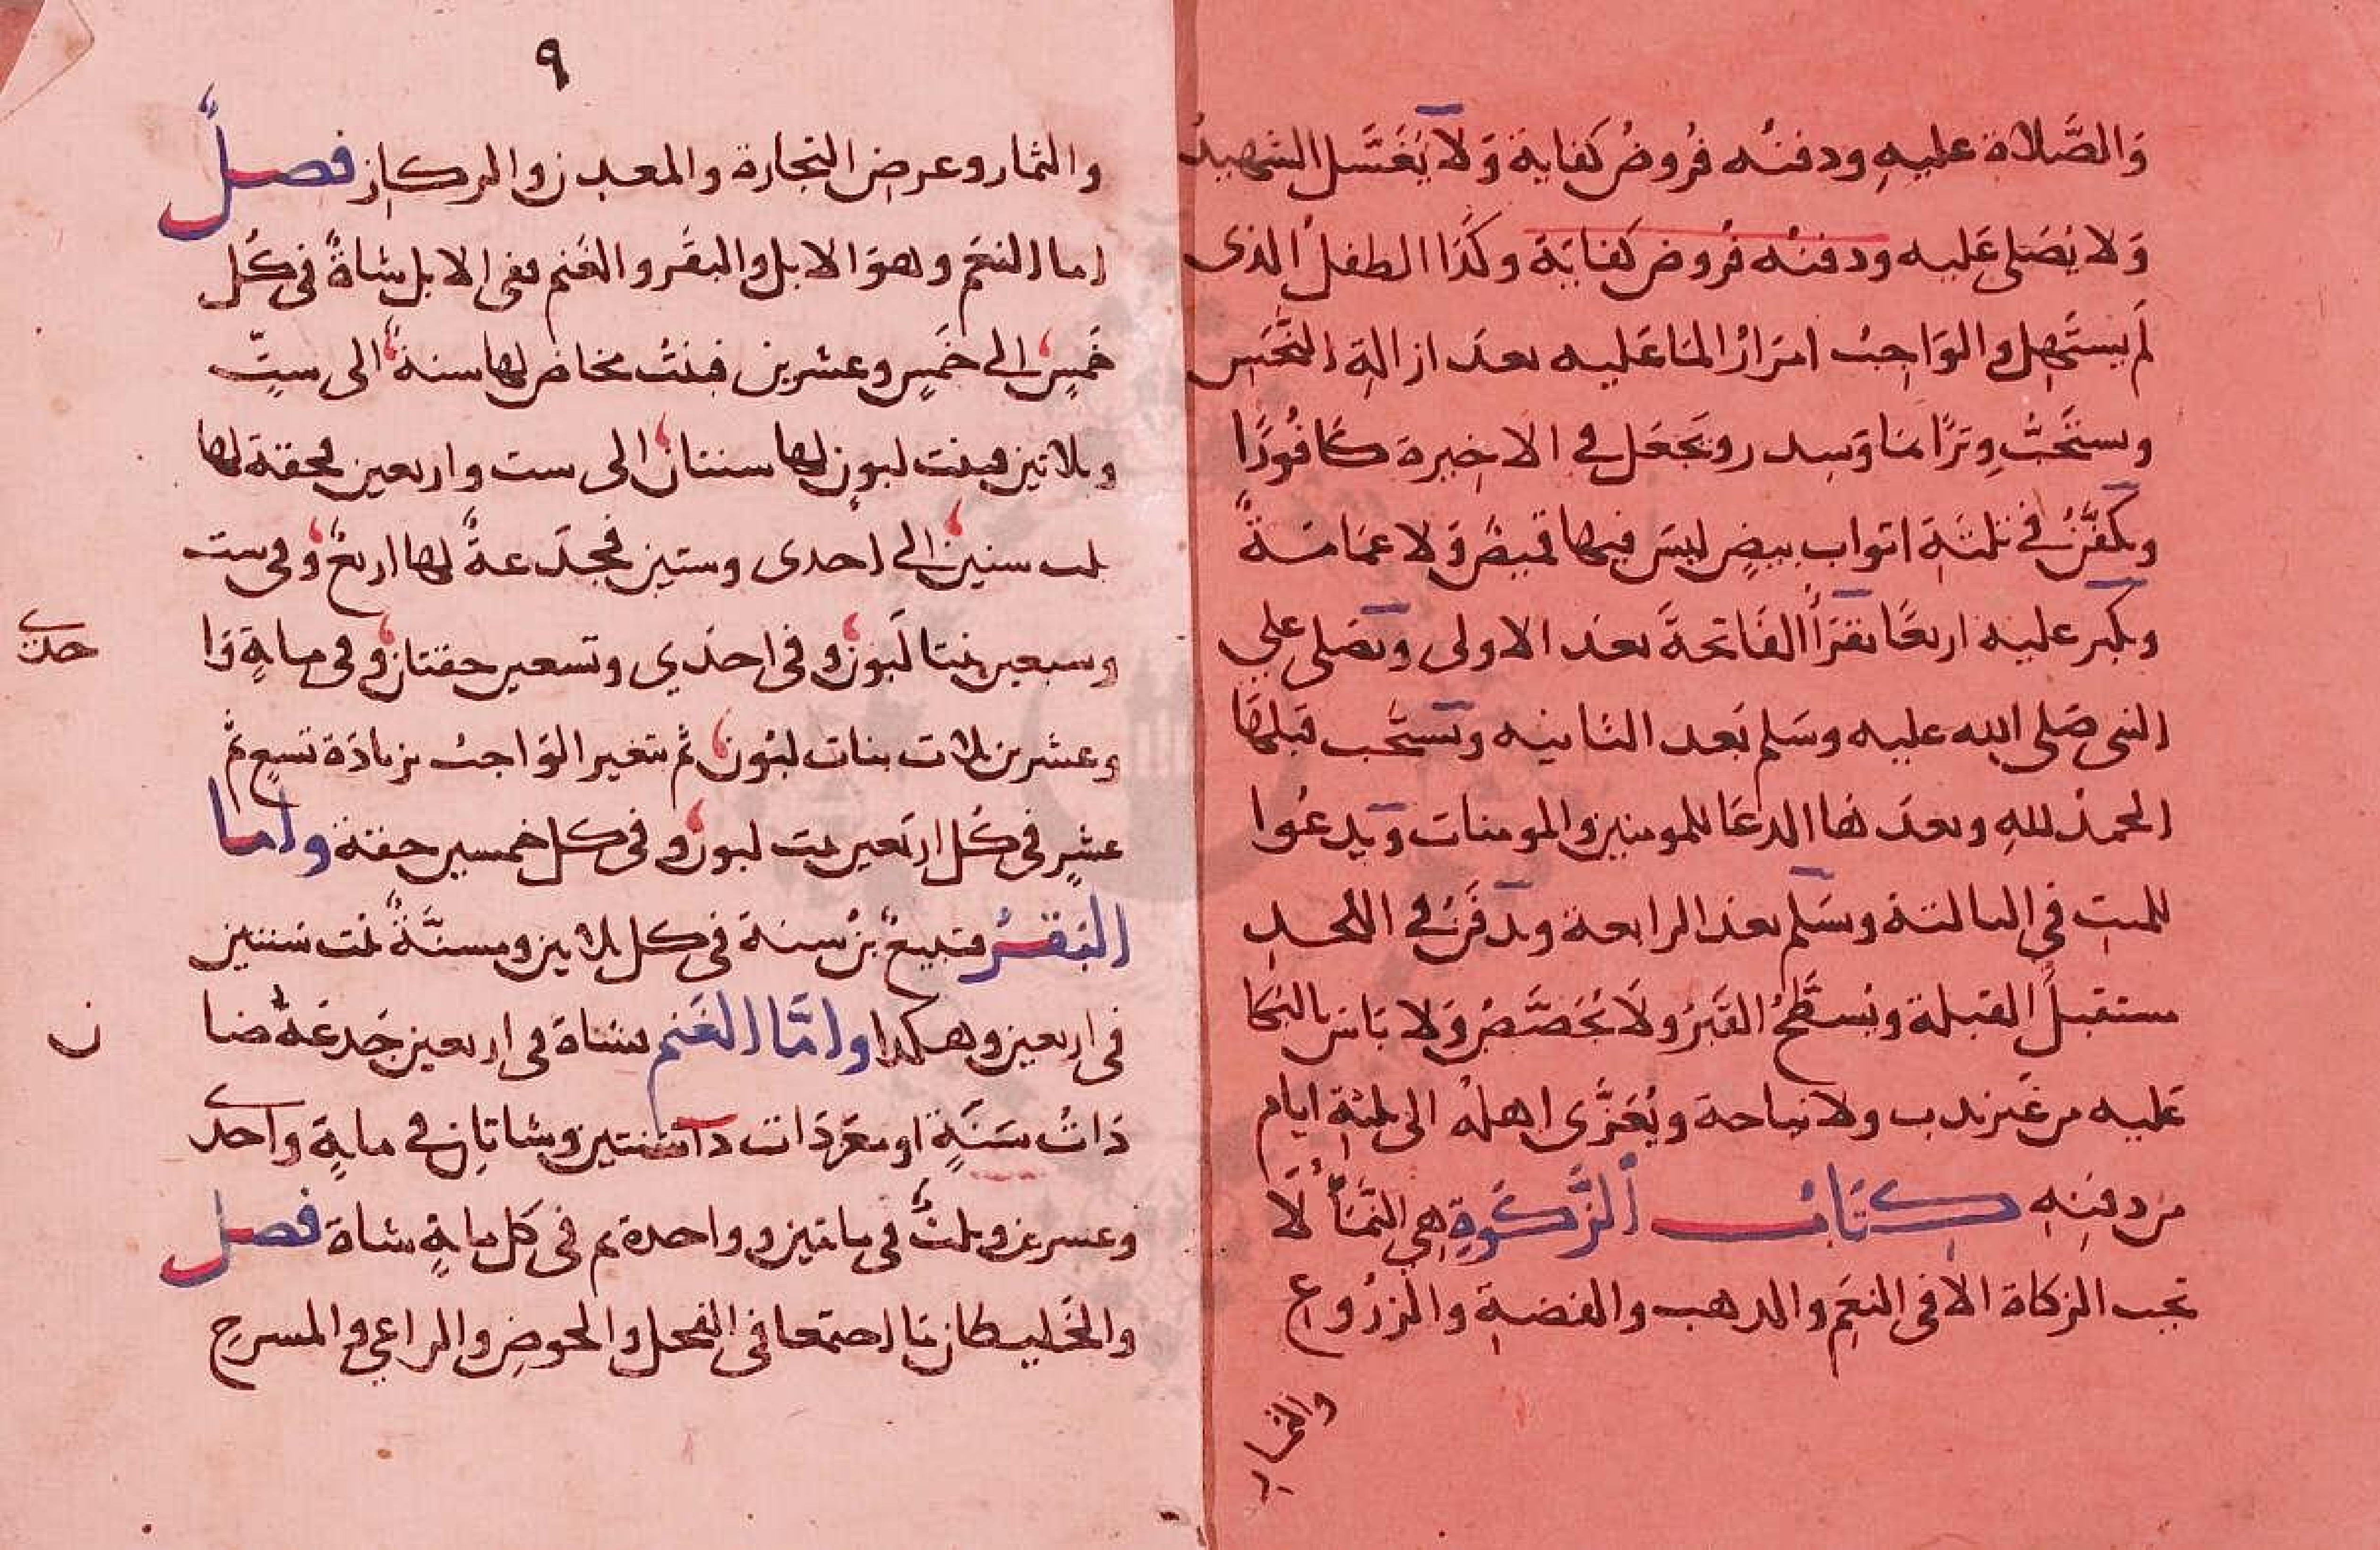 وَالصَّلاة عليهِ ودفنُه فُروضُ كفاية وَلا يُغَسَّل الشهيدُ
وَلا يُصَلى عَليه ودفنُه فُروض كفايَة وكَذا الطفلُ الذى
لم يستَهِل والوَاجبُ امرَارُ الماءَ عَليه بعدَ ازالةِ النَجَس
ويستَحَبُّ وِترًا بماَ وَسِدر ويَجعَل في الاخيرة كافُورًا
ويكفَّنُ في ثلثة اثواب بيضٍ ليسَ فيها قميصٌ وَلا عمَامَةٌ
ويكبر عليه اربعًا يقرَأ الفَاتحةَ بعدَ الاولى ويُصَلى علي
النبى صَلى الله عليه وسَلم بَعد الثانيه ويستَحب قبلهَا
الحمدُ للهِ وبعدَها الدعَا للمومنين والمومنات وَيدعُوا
للميت فى الثالثة ويسَلم بعد الرابعة ويدفَنُ في اللحدِ
مستقبلَ القبلة ويُسَطَّحُ القَبرُ ولَا يُجَصَّصُ وَلا بَاسَ بالبُكا
عَليه من غَير ندب ولا نياحة ويُعَزَّى اهلهُ الى ثلثةِ ايام
من دفنِهِ كِتَابُ الزَّكَوةِ هِي النَّمَأُ لَا
تجب الزكاة الا فى النعَم والذهب والفضةِ والزرُوعِ
والثمار
٩
والثمار وعرض التجارة والمعدن والركاز فصلٌ
اما النعَم وهوَ الابل والبقَر والغَنم ففى الابل شاةٌ فى كُل
خَمسٍ الى خَمسٍ وعشرين فبنتُ مخاض لها سنةٌ الى ستٍّ
وثلاثين فبنت لبونٍ لها سنتان الى ست واربعين فحقة لها
ثلث سنين الى احدى وستين فجذَعةٌ لها اربعٌ وفى ست
وسبعين بنتا لَبون وفى احدَي وتسعين حقتان وفى مايةٍ وَا
حدى
وعشرين ثلاث بنات لبُون ثم يتغير الوَاجبُ بزيادَة تسعٍ ثم
عشرٍ فى كُل اربَعين بنت لبون وفى كل خمسين حقة واما
البَقَرُ فتبيعٌ بنُ سنة فى كل ثلاثين ومسنَّةٌ بنت سنتين
فى اربعين وهكذا وامَّا الغَنم فشاة فى اربعين جَذعَةٌ ضا
ن
ذَاتُ سَنَةٍ او معز ذَات سنتين وشاتان في مايةٍ واحدى
وعشرين وثلثٌ فى مايتين وواحدة ثم فى كل مايةٍ شاة فصل
والخَليطان مَا اجتمعا فى الفحل والحوضِ والراعي والمسرحِ